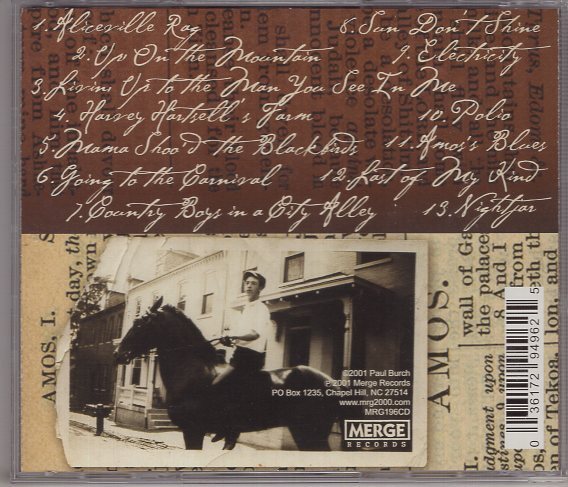 1. Aliceville Rag
2. Up On the Mountain
3. Livin' Up to the Man You See In Me
4. Harvey Hartsell's Farm
5. Mama Shoo'd the Blackbirds
6. Going to the Carnival
7. Country Boys in a City Alley
8. Sun Don't Shine
9. Electricity
10. Polio
11. Amos's Blues
12. Last of My Kind
13. Nightjar
©2001 Paul Burch
℗ 2001 Merge Records
PO Box 1235, Chapel Hill, NC 27514
www.mrg2000.com
MRG196CD
MERGE
RECORDS
AMOS, I.
AMOS.
wall of Ga
the palace
8 And I
from
eth th
ion, and
judgment upon
of Tekoa,
0 36172 94962 5